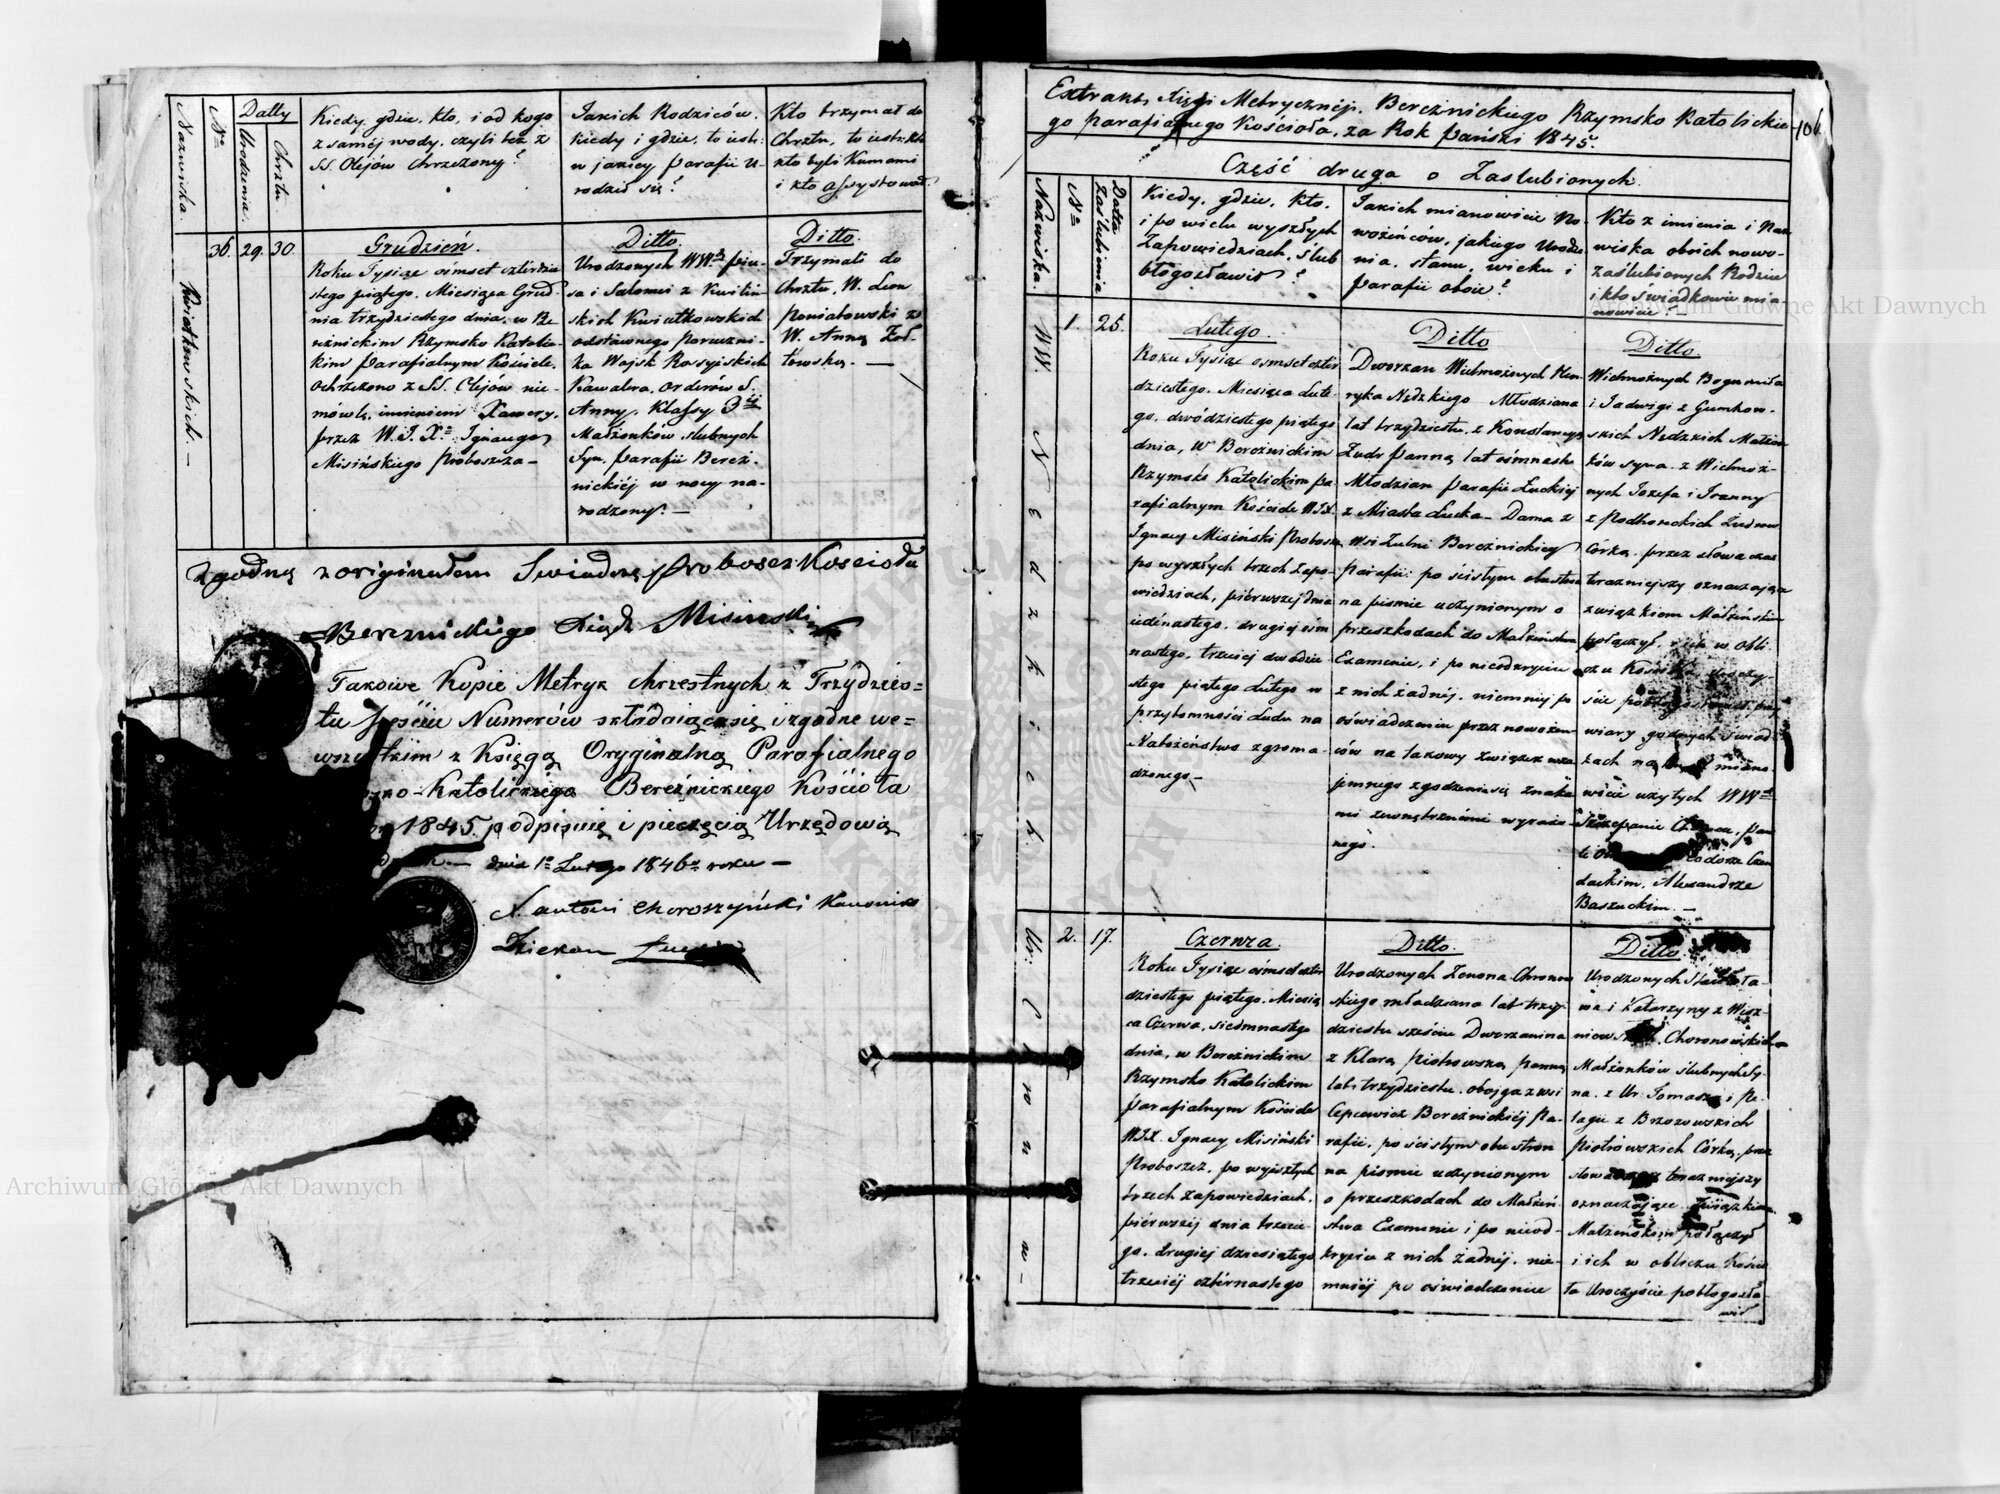 Nazwiska.
No
Datty
Urodzenia.
Chrztu.
Kiedy, gdzie, kto, i od kogo
z samej wody, czyli też z
SS. Olejów chrzczony?
Jakich Rodziców,
kiedy i gdzie, to iest:
w jakiey Parafii u-
rodził się?
Kto trzymał do
Chrztu, to iest:
kto byli Kumami
i kto assystował
36. 29. 30.
Kwiatkowskich. —
Grudzień.
Roku Tysiąc ośmset czterdzie
stego piątego, Miesiąca Grud-
nia trzydziestego dnia, w Be
reźnickim Rzymsko Katolic-
kim Parafialnym Kościele,
Ochrzczono z SS. Olejów nie-
mówlę, imieniem Xawery,
przez W. J. X. Ignacego
Misińskiego Proboszcza —
Ditto.
Urodzonych WW. Piu-
sa i Salomei z Kwiliń-
skich Kwiatkowskich
odstawnego Porucznika
Woysk Rossyjskich
Kawalera, Orderów S.
Anny, Klassy 3ej
Małżonków ślubnych
Syn, Parafii Bereź-
nickiéj w nocy na-
rodzony. —
Ditto.
Trzymali do
Chrztu, W. Leon
Poniatowski z
W. Anną Żoł-
towską. —
Zgodną z originałem Swiadczę Proboszcz Kościoła
Bereznickiego Xiądz Misinski
Takowe Kopie Metryk chrzestnych z Trzydzies-
tu Sześciu Numerów składaiące się i zgodne we-
wszystkim z Księgą Oryginalną Parafialnego
Katolickiego Bereźnickiego Kościoła
1845. podpisuię i pieczęcią Urzędową
dnia 1o Lutego 1846o roku —
X. Antoni Choroszyński Kanonik
Dziekan
Extrakt Xięgi Metrycznéj. Bereźnickiego Rzymsko Katolickie-
go Parafialnego Kościoła, za Rok Pański 1845.
106
Część druga o Zaślubionych.
Nazwiska.
No
Datta
Zaślubienia
Kiedy, gdzie, kto,
i po wielu wyszłych
Zapowiedziach, ślub
błogosławił?
Jakich mianowicie No-
wożeńców, jakiego Urodze
nia, stanu, wieku i
Parafii oboie?
Kto z imienia i Naz
wiska oboich nowo-
zaślubionych Rodzice
i kto świadkowie mia
nowicie? —
1. 25.
WW. Nędzkich.
Lutego.
Roku Tysiąc ośmset czter
dziestego, Miesiąca Lute-
go, dwódziestego piątego
dnia, W Bereźnickim
Rzymsko Katolickim Pa-
rafialnym Kościele WJX.
Ignacy Misiński Proboszcz
po wyszłych trzech Zapo-
wiedziach, pierwszej dnia
iedinastego, drugiej ośm
nastego, trzeciej dwódzie
stego piątego Lutego w
przytomności Ludu na
Nabożeństwo zgroma-
dzonego —
Ditto
Dworzan Wielmożnych Hen-
ryka Nędzkiego Młodziana
lat trzydziestu, z Konstancyą
Panną lat ośmnastu
Młodzian Parafii Łuckiej
z Miasta Łucka — Dama z
Wsi Bereźnickiey
Parafii: po ścisłym obustron
na piśmie uczynionym o
przeszkodach do Małżeństwa
Examenie, i po nieodkryciu
z nich żadnéj, niemniej po
oświadczeniu przez nowożeń-
ców na takowy Związek wza
iemnego zgodzenia się znaka
mi zewnętrznémi wyrażo-
nego.
Ditto.
Wielmożnych Bogumiła
i Jadwigi z Gumkow-
skich Nędzkich Małżon-
ków syna, z Wielmoż-
nych Jozefa i Joanny
z Podhoreckich
Córką, przez słowa czas
teraźniejszy oznaczające
związkiem Małżeńskim
połączył, i ich w obli
czu Kościoła uroczy-
ście pobłogosławił, przy
wiary godnych świad-
kach na miano-
wicie użytych WW
Szczepanie
Teodorze
Alexandrze
Baszuckim. —
2. 17.
Czerwca.
Roku Tysiąc ośmset czter
dziestego piątego, Miesią
ca Czerwca, siedmnastego
dnia, w Bereźnickim
Rzymsko Katolickim
Parafialnym Kościele
WJX. Ignacy Misiński
Proboszcz, po wyszłych
trzech zapowiedziach,
piérwszéj dnia trzecie-
go, drugiej dziesiątego
trzeciéj cztérnastego
Ditto.
Urodzonych Zenona Chronow
skiego młodziana lat trzy-
dziestu sześciu Dworzanina
z Klarą Piotrowską panną
lat trzydziestu, obojga z wsi
Cepcewicz Bereźnickiéj Pa-
rafii, po ścisłym obustron
na piśmie uczynionym
o przeszkodach do Małżeń
stwa Examenie i po nieod-
kryciu z nich żadnéj, nie-
mniéj po oświadczeniu
Ditto.
Urodzonych
i Katarzyny z Wisz-
niewskich Choronowskich
Małżonków ślubnych Sy-
na, z Ur: Tomasza i Pe-
lagii z Brzozowskich
Piotrowskich Córką, przez
słowa czas teraźniejszy
oznaczające związkiem
Małżeńskim połączył
i ich w obliczu Kościo
ła Uroczyście pobłogosła-
wił
Archiwum Główne Akt Dawnych
Archiwum Główne Akt Dawnych